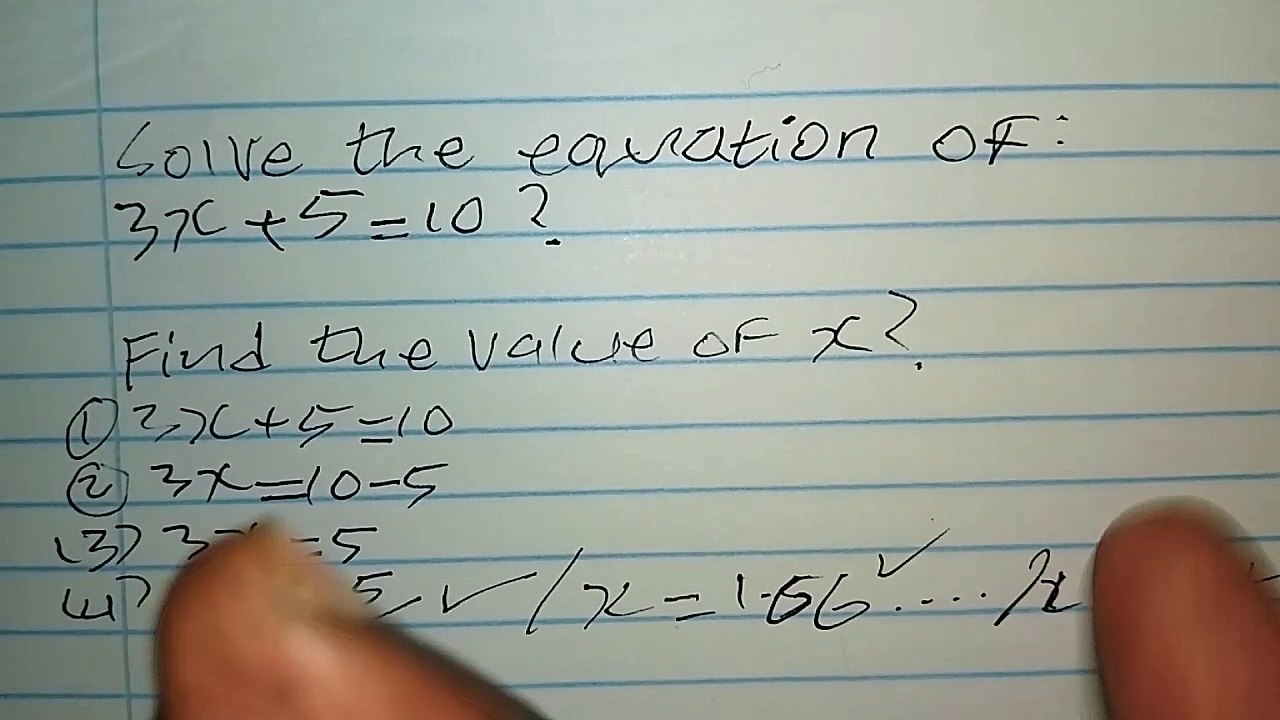 Solve the equation of:
3x + 5 = 10 ?
Find the value of x?
① 3x + 5 = 10
② 3x = 10 - 5
(3) 3x = 5
(4) 5 ✓ / x = 1.66 ✓ .... / x